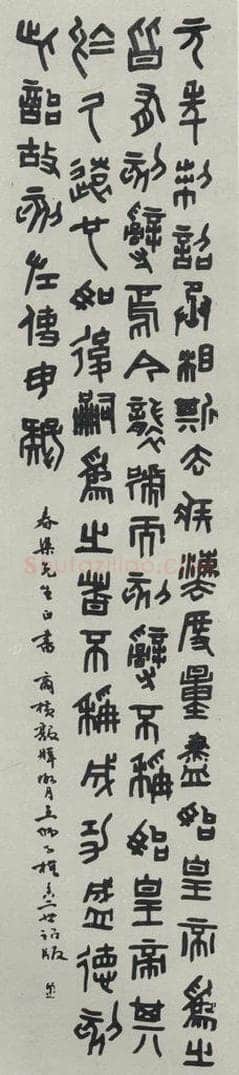 元年制詔丞相斯去疾灋度量盡始皇帝爲之
皆有刻辭焉今襲號而刻辭不稱始皇帝其
於久遠也如後嗣爲之者不稱成功盛德刻
此詔故刻左使毋疑
先生正書 商橫敦牂 月 二世詔版